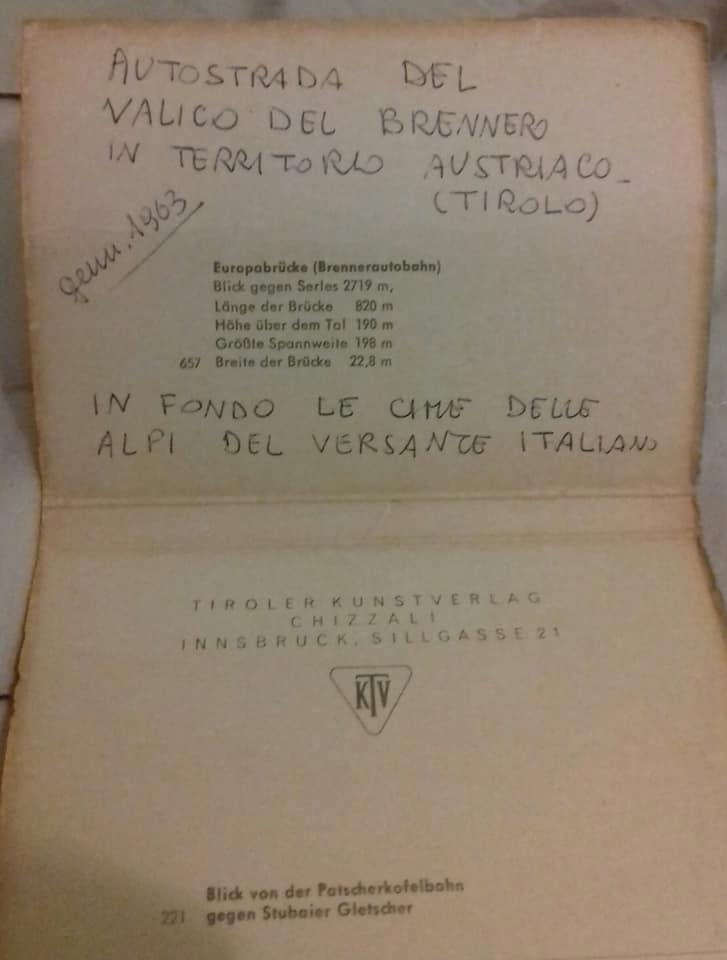 AUTOSTRADA DEL
VALICO DEL BRENNERO
IN TERRITORIO AUSTRIACO_
(TIROLO)
genn. 1963
Europabrücke (Brennerautobahn)
Blick gegen Serles 2719 m,
Länge der Brücke 820 m
Höhe über dem Tal 190 m
Größte Spannweite 198 m
657 Breite der Brücke 22,8 m
IN FONDO LE CIME DELLE
ALPI DEL VERSANTE ITALIANO
TIROLER KUNSTVERLAG
CHIZZALI
INNSBRUCK, SILLGASSE 21
KTV
Blick von der Patscherkofelbahn
221 gegen Stubaier Gletscher